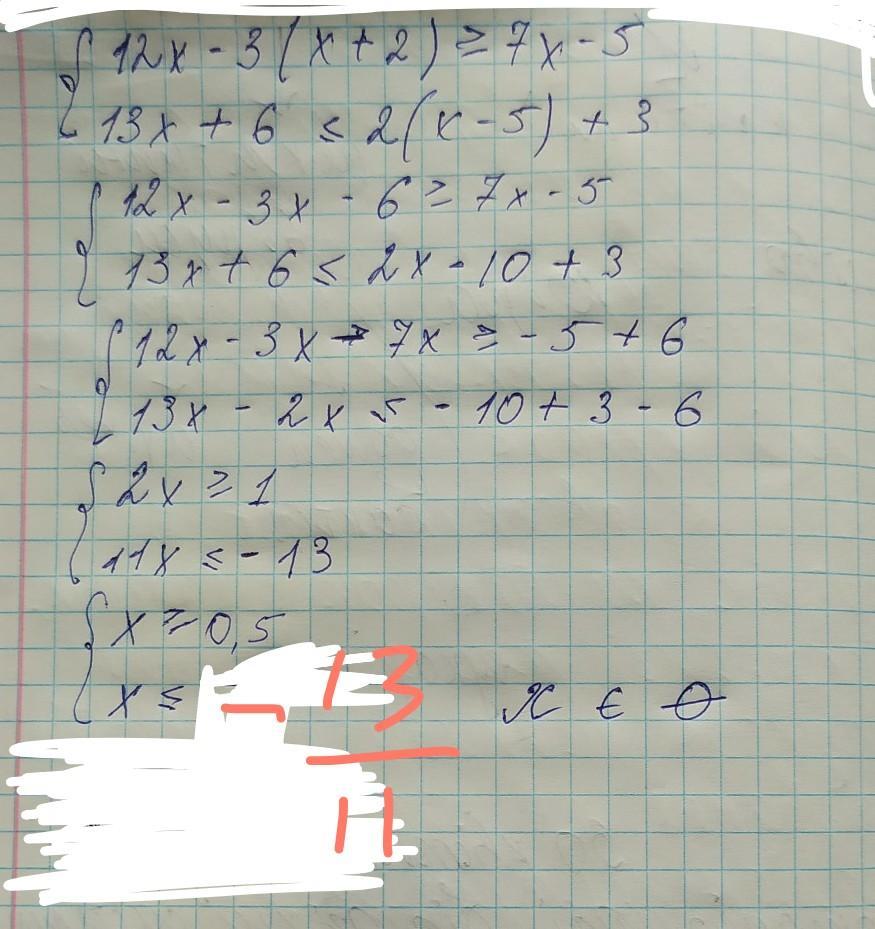 { 12x - 3(x + 2) ≥ 7x - 5
{ 13x + 6 ≤ 2(x - 5) + 3
{ 12x - 3x - 6 ≥ 7x - 5
{ 13x + 6 ≤ 2x - 10 + 3
{ 12x - 3x - 7x ≥ - 5 + 6
{ 13x - 2x ≤ - 10 + 3 - 6
{ 2x ≥ 1
{ 11x ≤ - 13
{ x ≥ 0,5
{ x ≤ - 13/11 x ∈ ∅